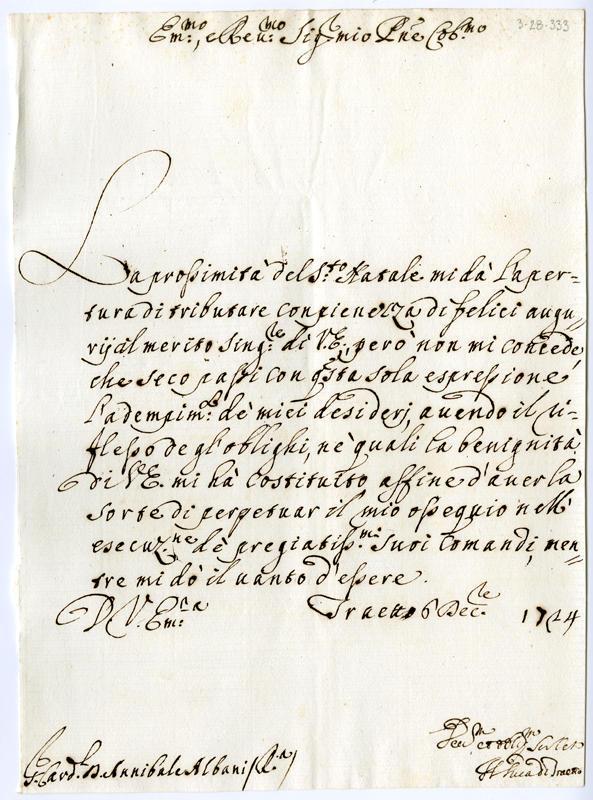 3-28-333
Em:mo, e Reu:mo Sig mio Pne Cob:mo
La prossimità del S:to Natale mi dà l'aper-
tura di tributare con pienezza di felici augu-
rij il merito sing:le di V.E., però non mi concede,
che seco passi con qsta sola espressione
l'adempim:to de miei desiderj, auendo il ri-
flesso de gl'oblighi, ne quali la benignità
di V.E. mi hà costituito affine d'auer la
sorte di perpetuar il mio ossequio nell'
esecuz:ne dè pregiatiss:mi Suoi Comandi, men-
tre mi dò il uanto d'essere.
D V. Em:ra Traetto 6 Dec:le 1724
Card.l D. Annibale Albani
Il Duca di Traetto